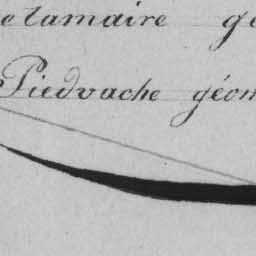 etamaire gé
Piedvache géom